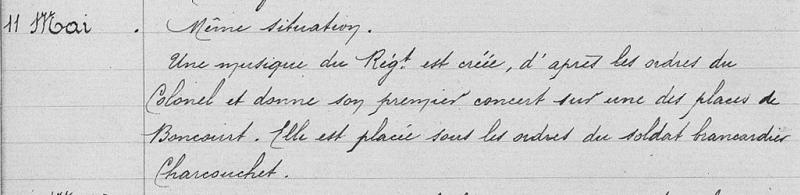 11 Mai . Même situation.
Une musique du Régt est créée, d'après les ordres du
Colonel et donne son premier concert sur une des places de
Boncourt. Elle est placée sous les ordres du soldat brancardier
Charcouchet.